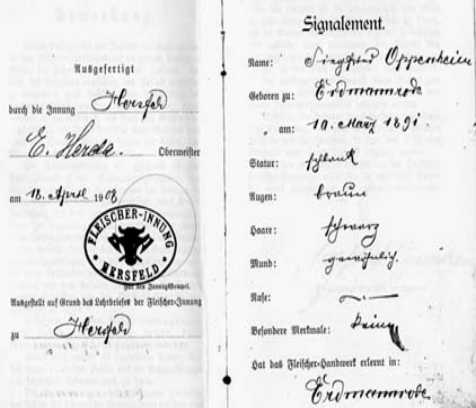 Ausgefertigt
durch die Innung Hersfeld
E. Herda. Obermeister
am 18. April 1908
FLEISCHER-INNUNG
HERSFELD
Ausgestellt auf Grund des Lehrbriefes der Fleischer-Innung
zu Hersfeld
Signalement.
Name: Siegfried Oppenheim
Geboren zu: Erdmannrode
" am: 10. März 1891.
Statur: schlank
Augen: braun
Haare: schwarz
Mund: gewöhnlich.
Nase: "
Besondere Merkmale: keine
Hat das Fleischer-Handwerk erlernt in:
Erdmannrode